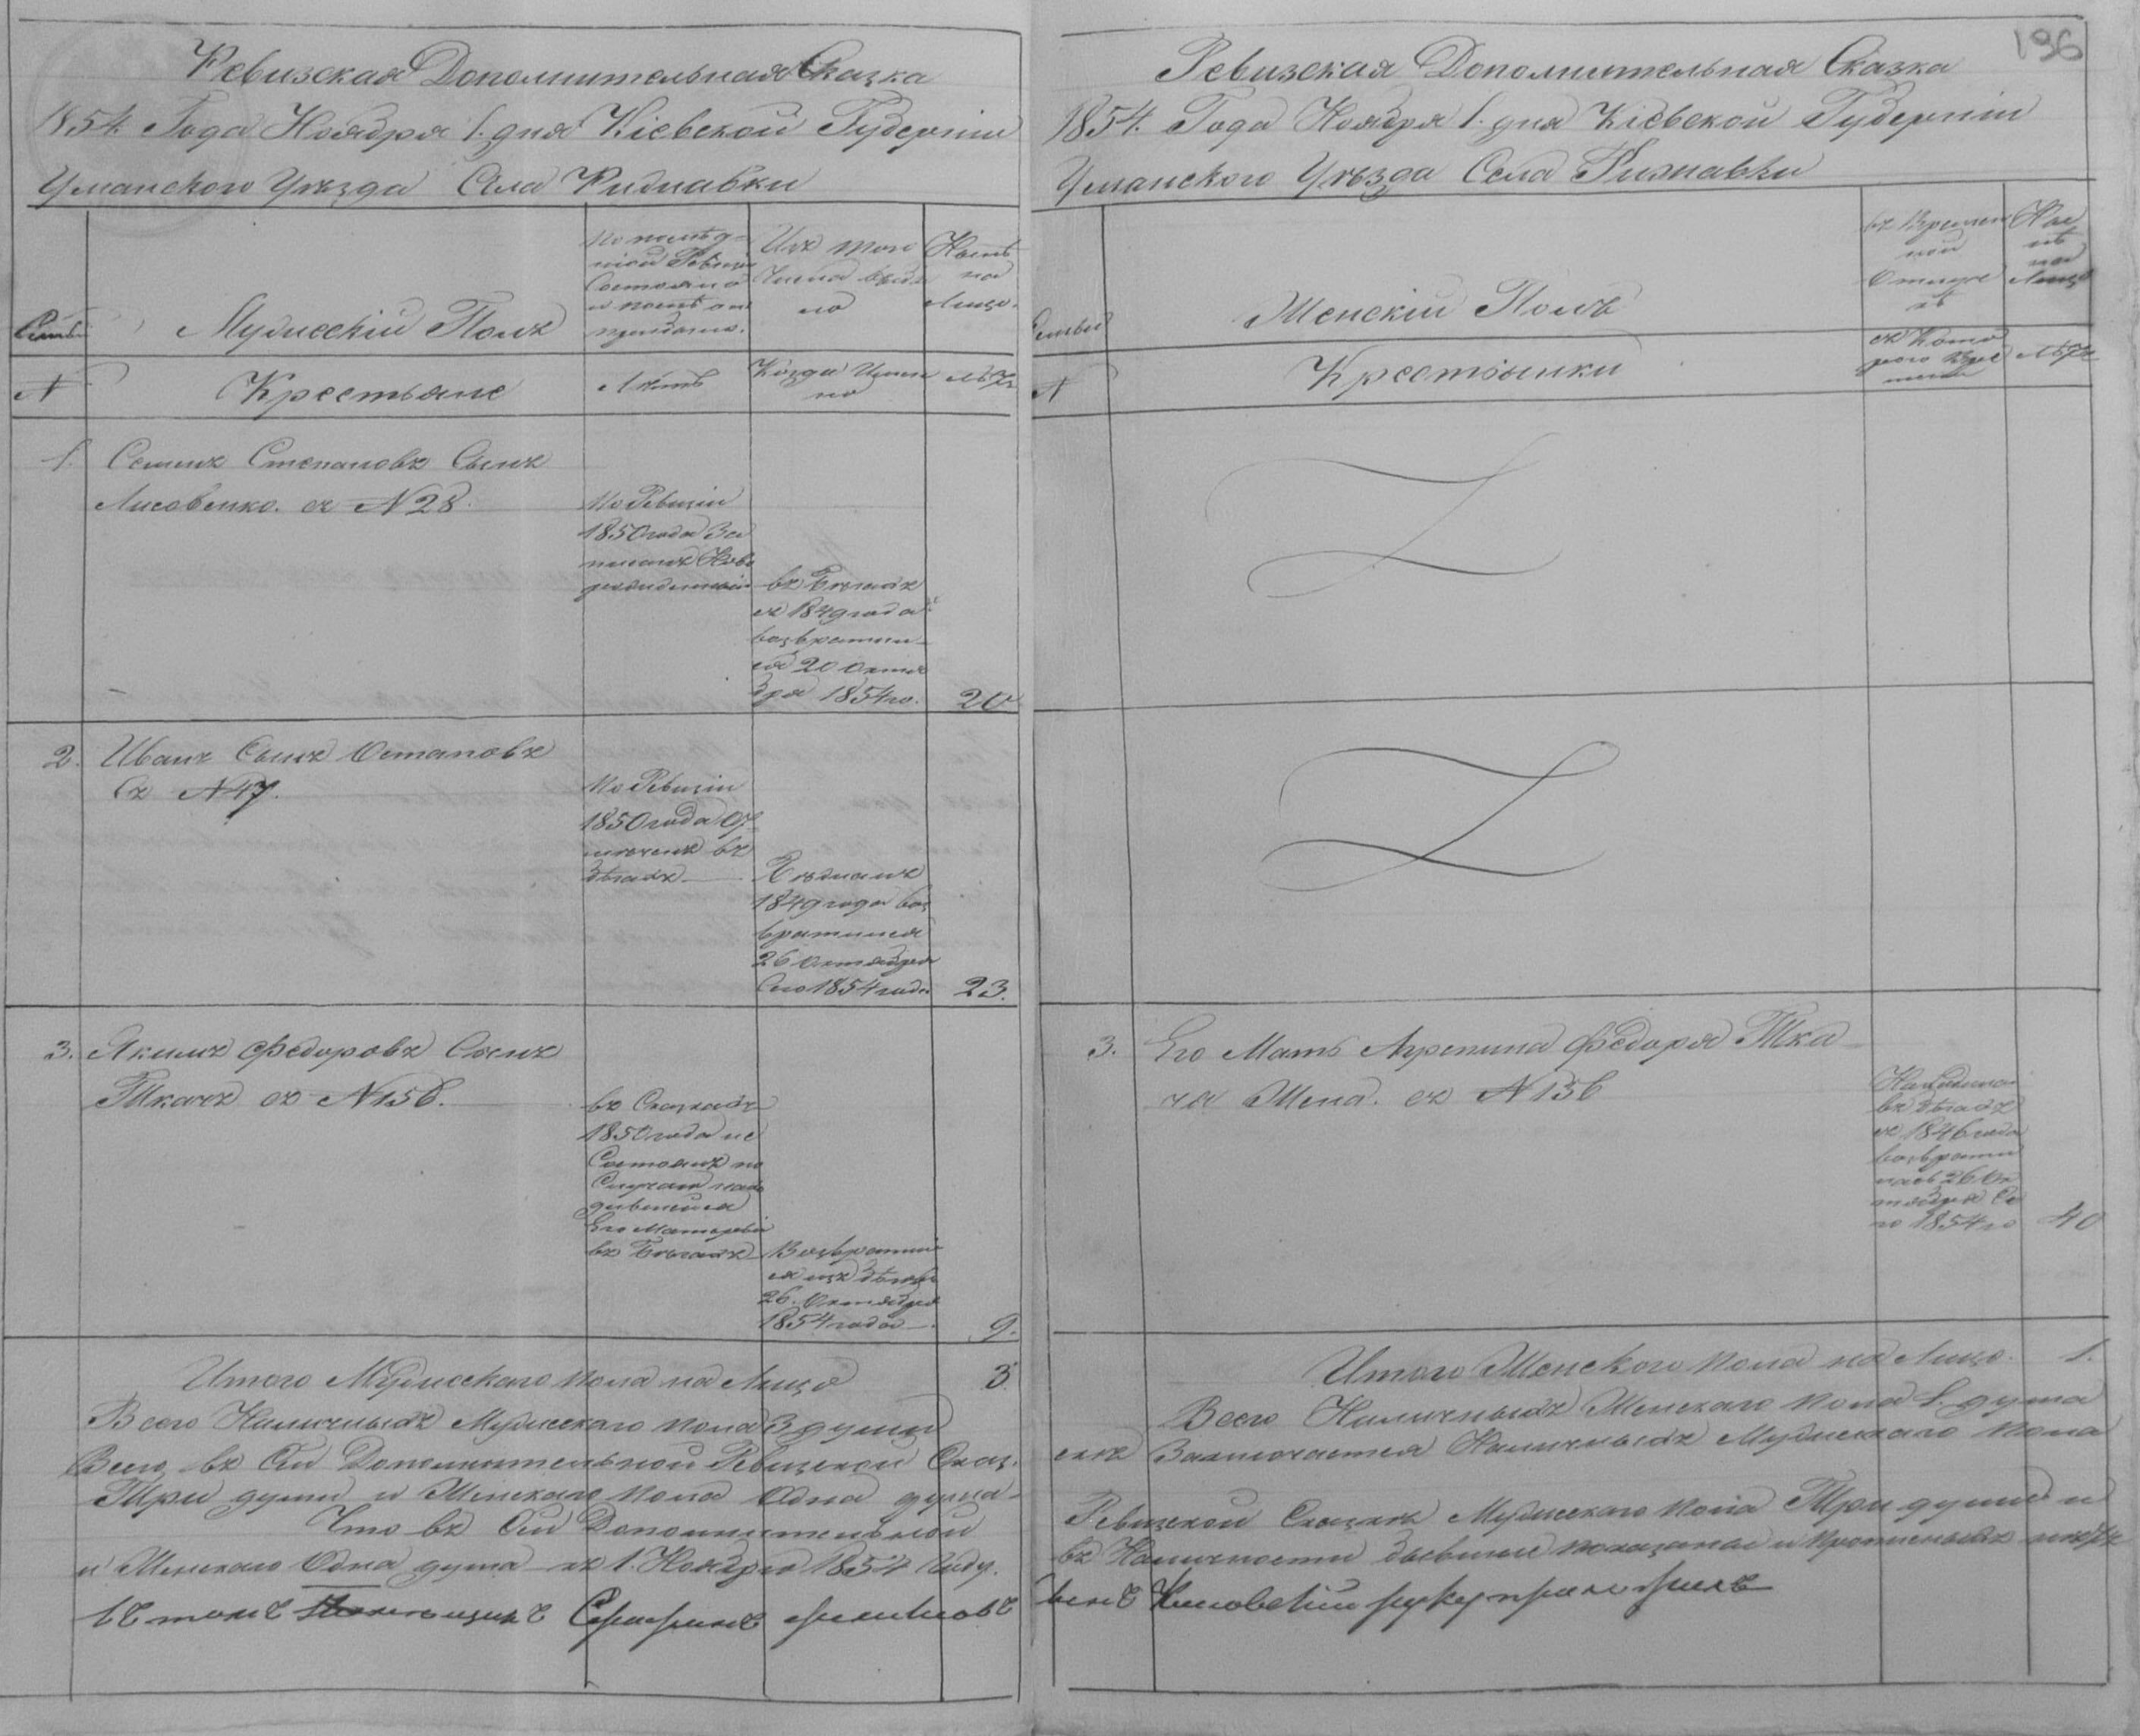 Ревизская Дополнительная Сказка
1854 Года Ноября 1. дня Кіевской Губерніи
Уманского Уезда Села Рижавки
Мужескій Полъ
Изъ того числа выбыло
Нынѣ на Лицо.
№
Крестьяне
Лѣтъ
Когда Имянно
Лѣтъ
1. Семенъ Степановъ Сынъ
Лисовенко. съ N 28.
По Ревизіи
1850 года За
писанъ Ново
рожденнымъ
въ Бегахъ
съ 1849 года
возвратил
ся 20 Октя
бря 1854 го.
20
2. Иванъ Сынъ Остаповъ
Съ N 47.
По Ревизіи
1850 года От
мѣченъ въ
бѣгахъ
1849 года воз
вратился
26 Октября
Сего 1854 года
23.
3. Якимъ Федоровъ Сынъ
Ткачъ съ N 156.
въ Сказкахъ
1850 года не
Состоялъ по
Случаю нахо
дившейся
Его Матери
въ Бегахъ
Возвратил
ся изъ бѣговъ
26. Октября
1854 года
9.
Итого Мужеского пола на Лицо 3.
Всего Наличныхъ Мужеского пола 3 души
Всего въ Сей Дополнительной Ревизской Сказ.
Три души и Женскаго пола Одна душа
Что въ Сей Дополнительной
и Женскаго Одна душа къ 1. Ноября 1854 Году.
въ томъ
196
Ревизская Дополнительная Сказка
1854. Года Ноября 1. дня Кіевской Губерніи
Уманского Уѣзда Села Рижавки
Женскій Полъ
въ Времен
ной
Отлучк
ѣ
На
Лицо
№
Крестьянки
съ Кото
рого Вре
мени
Лѣтъ
3. Его Мать Агрепина Федора Тка
ча Жена. съ N 156
Находилась
въ бѣгахъ
съ 1846 года
возврати
лась 26 Ок
тября Се
го 1854 го
40
Итого Женского пола на Лицо. 1.
Всего Наличныхъ Женскаго пола 1. душа
екъ Заключается Наличныхъ Мужескаго пола
Ревизской Сказкѣ Мужескаго пола Три души и
въ Наличности показаны и
руку приложилъ